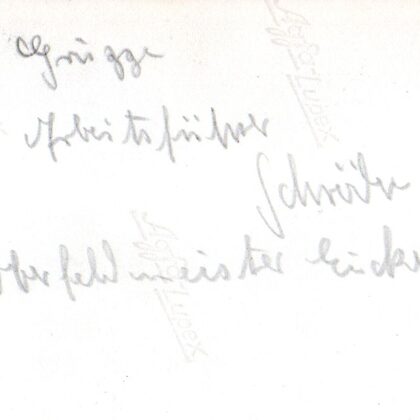 Gruppe
Arbeitsführer
Schröder
Oberfeldmeister
Agfa Lupex
Agfa Lupex